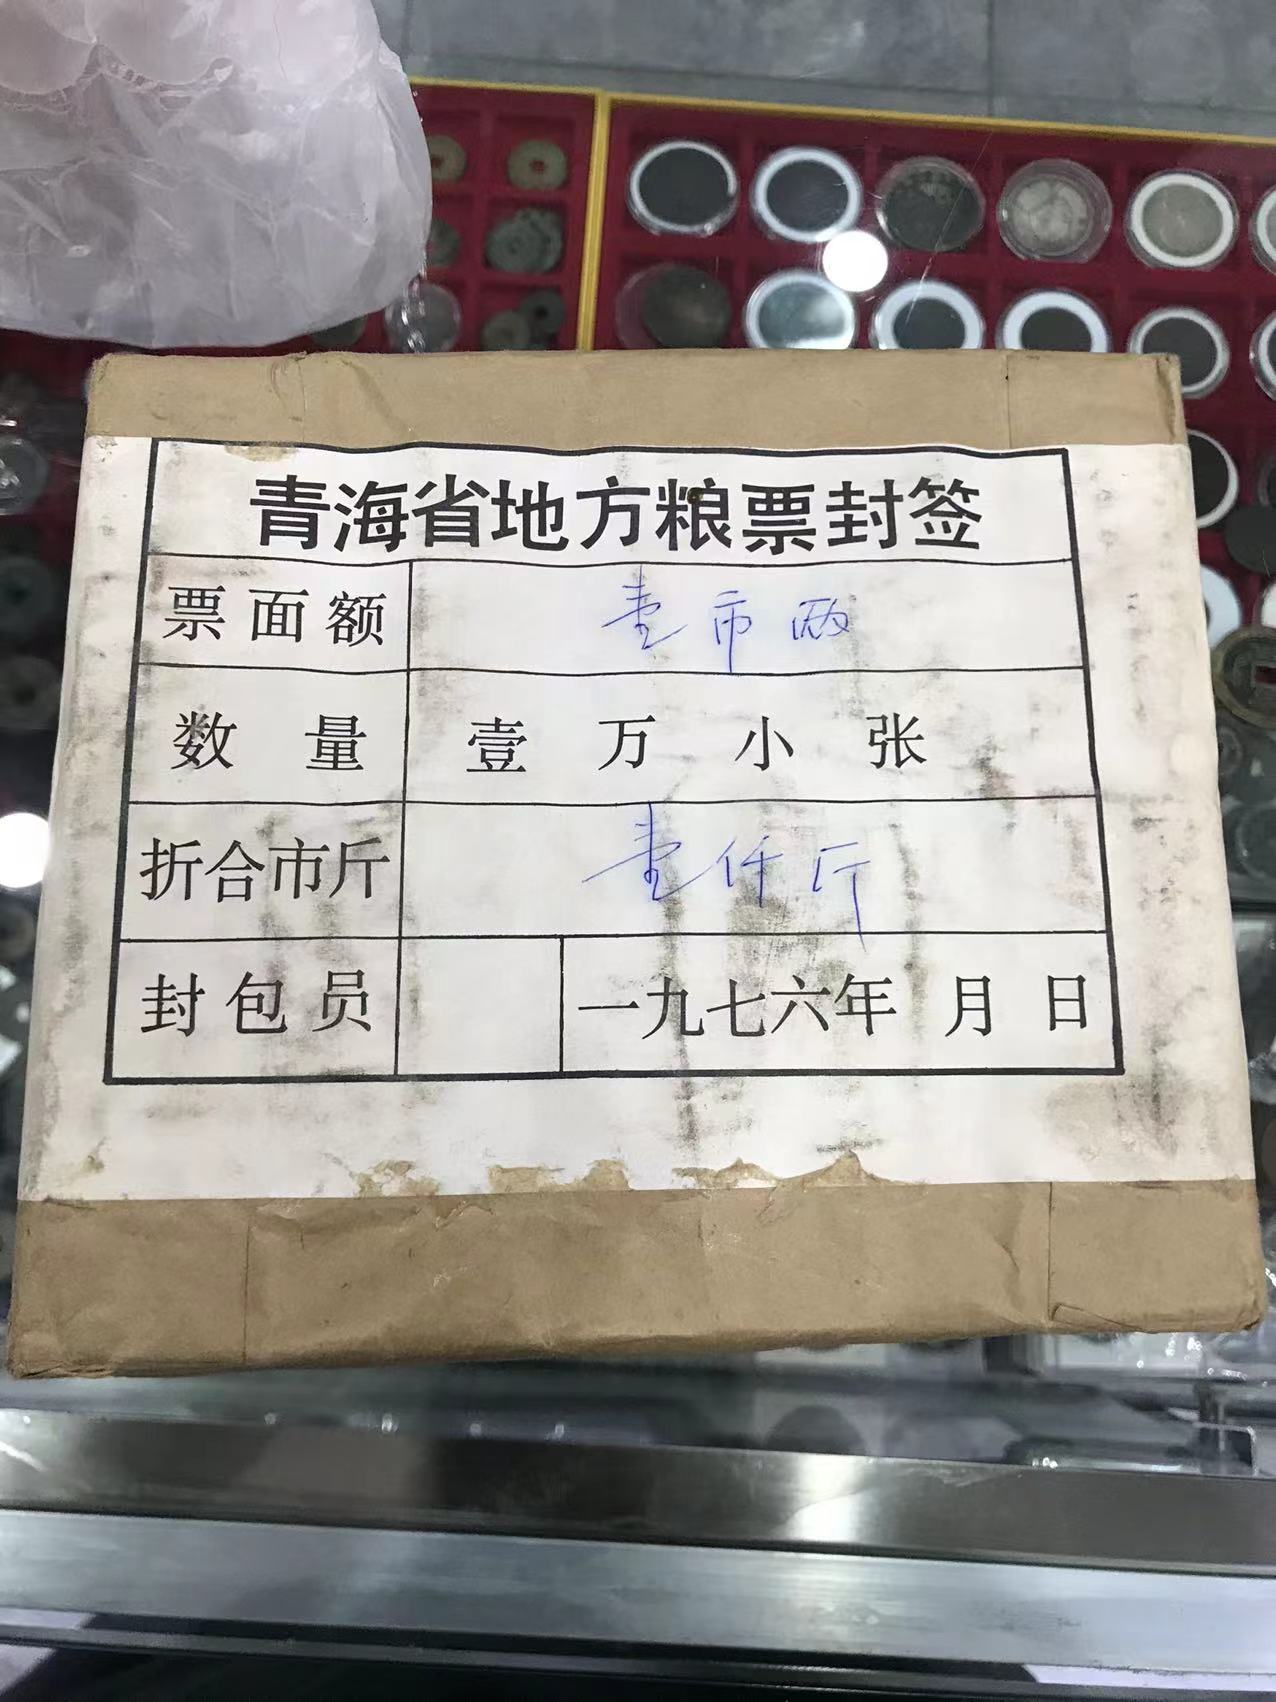 青海省地方粮票封签
票面额 壹市两
数量 壹万小张
折合市斤 壹仟斤
封包员 一九七六年 月 日